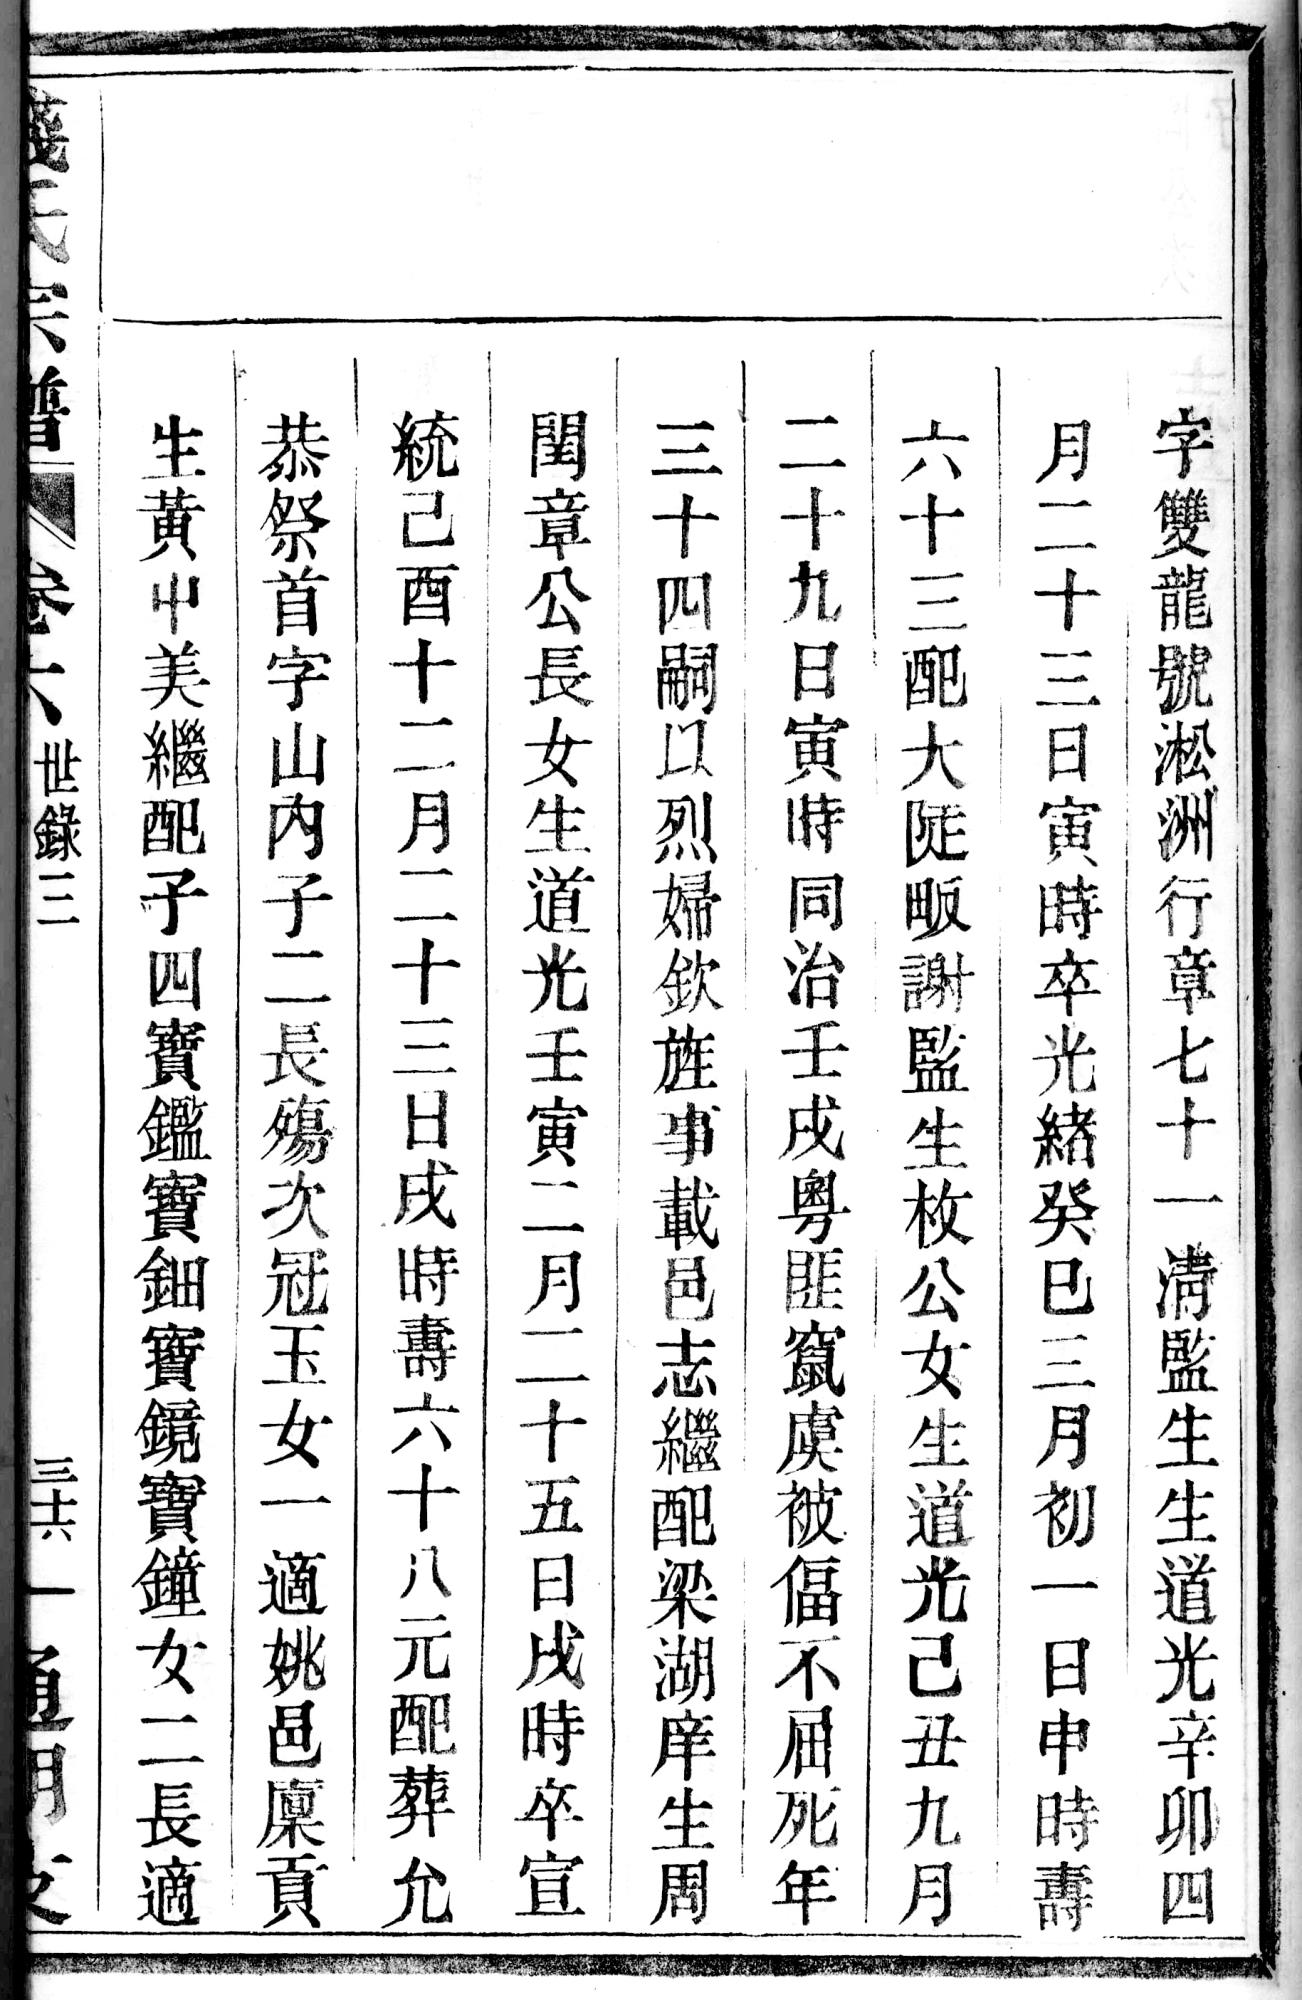 字雙龍號淞洲行章七十一淸監生生道光辛卯四
月二十三日寅時卒光緒癸巳三月初一日申時壽
六十三配大陡畈謝監生枚公女生道光己丑九月
二十九日寅時同治壬戌粵匪竄虞被偪不屈死年
三十四嗣以烈婦欽旌事載邑志繼配梁湖庠生周
閏章公長女生道光壬寅二月二十五日戌時卒宣
統己酉十二月二十三日戌時壽六十八元配葬允
恭祭首字山內子二長殤次冠玉女一適姚邑廩貢
生黃中美繼配子四寶鑑寶鈿寶鏡寶鐘女二長適
錢氏宗譜 卷六 世錄三 三十六 一 通明支